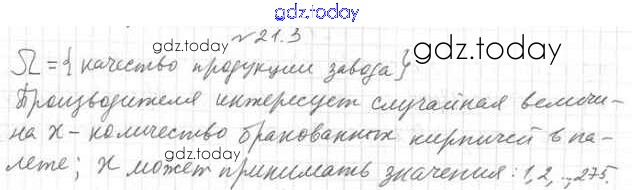 gdz.today
№21.3
gdz.today
gdz.today
Ω = { качество продукции завода }
Производителя интересует случайная величи-
на X - количество бракованных кирпичей в па-
gdz.today
gdz.today
лете; X может принимать значения: 1, 2, ..., 275.